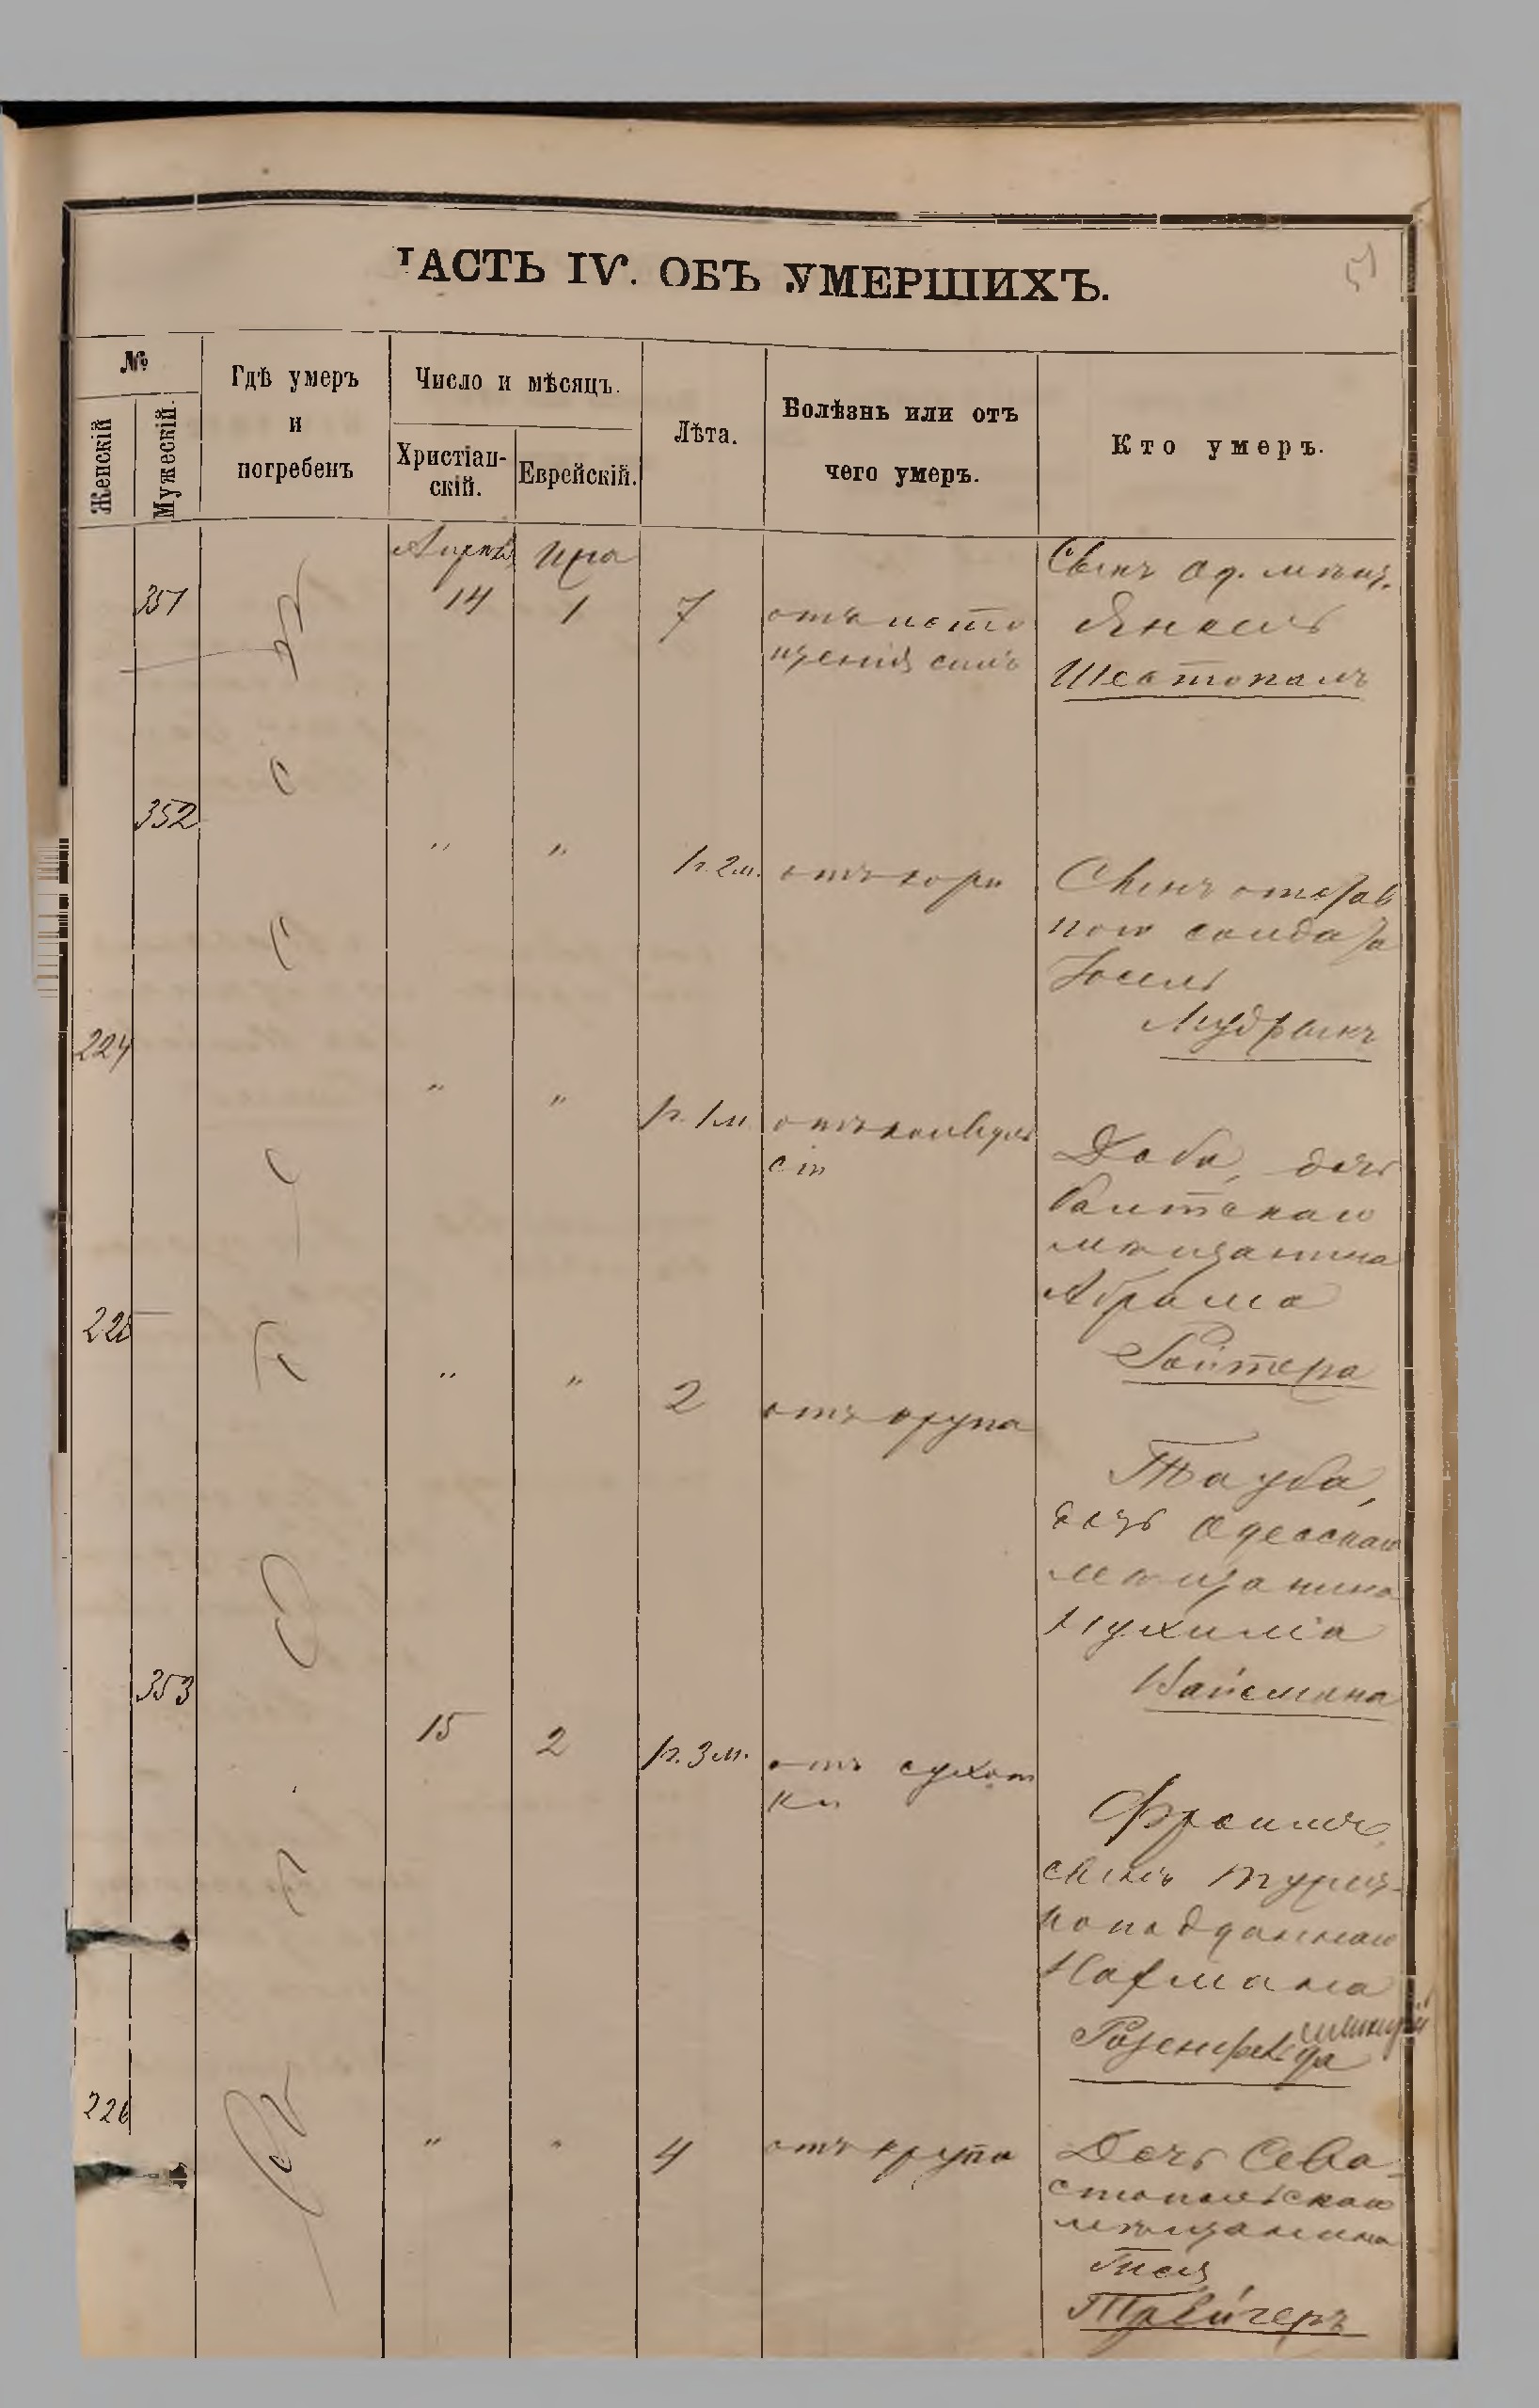 ЧАСТЬ IV. ОБЪ УМЕРШИХЪ.
№
Женскій
Мужескій.
Гдѣ умеръ
и
погребенъ
Число и мѣсяцъ.
Христіан-
скій.
Еврейскій.
Лѣта.
Болѣзнь или отъ
чего умеръ.
Кто умеръ.
351
14
1
7
отъ исто
щенія силъ
Сынъ Од. мѣщ.
Янкель
Шестопалъ
352
"
"
1г. 2м.
отъ кори
Сынъ отстав
ного солдата
Іосель
Мудрыкъ
224
"
"
1г. 1м
отъ конвуль
сіи
Доба, дочь
Балтскаго
мѣщанина
Абрама
Ройтера
225
"
"
2
отъ крупа
Тауба,
дочь Одесскаго
мѣщанина
Нухима
Вайсмана
353
15
2
1г. 3м.
отъ сухот
ки
Фроимъ,
сынъ турец-
коподданнаго
Нахмана
Розенфельда
226
"
"
4
отъ крупа
Дочь Сева-
стопольскаго
мѣщанина